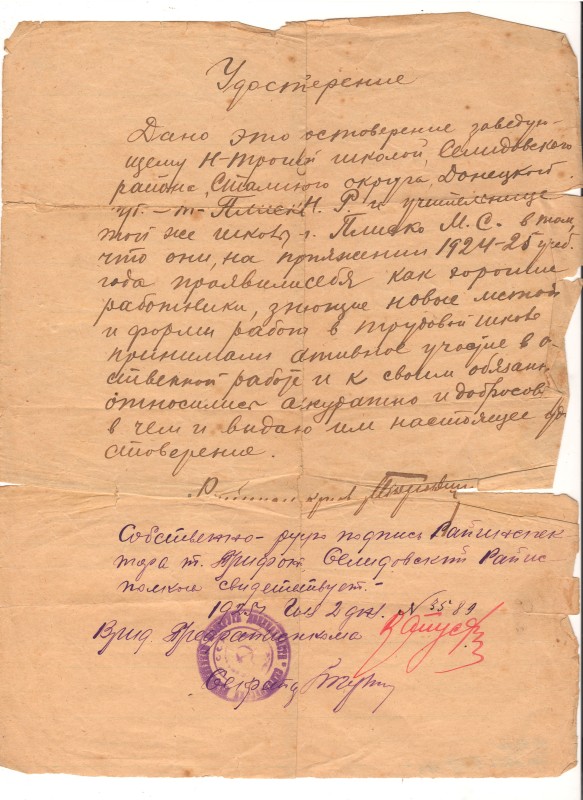 Удостерение
Дано это остоверение заведую-
щему Н-Троцкой школой, Селидовского
района, Сталинского округа, Донецкой
губ. т. Н. Р. и учительнице
той же школы т. Плиско М. С. в том,
что они, на протяжении 1924-25 учеб.
года проявили себя как хорошие
работники, знающие новые методы
и формы работы в трудовой школе
принимали активное участие в о-
ственной работе и к своим обязан
относились аккуратно и добросов
в чем и выдаю им настоящее удо
стоверение.
Собственно-ручную подпись Райинспек
тора т. Селидовский Райис
полком свидетельствует.-
1925 года 2 дня. № 3589
Врид. Предрайисполкома
Секретарь